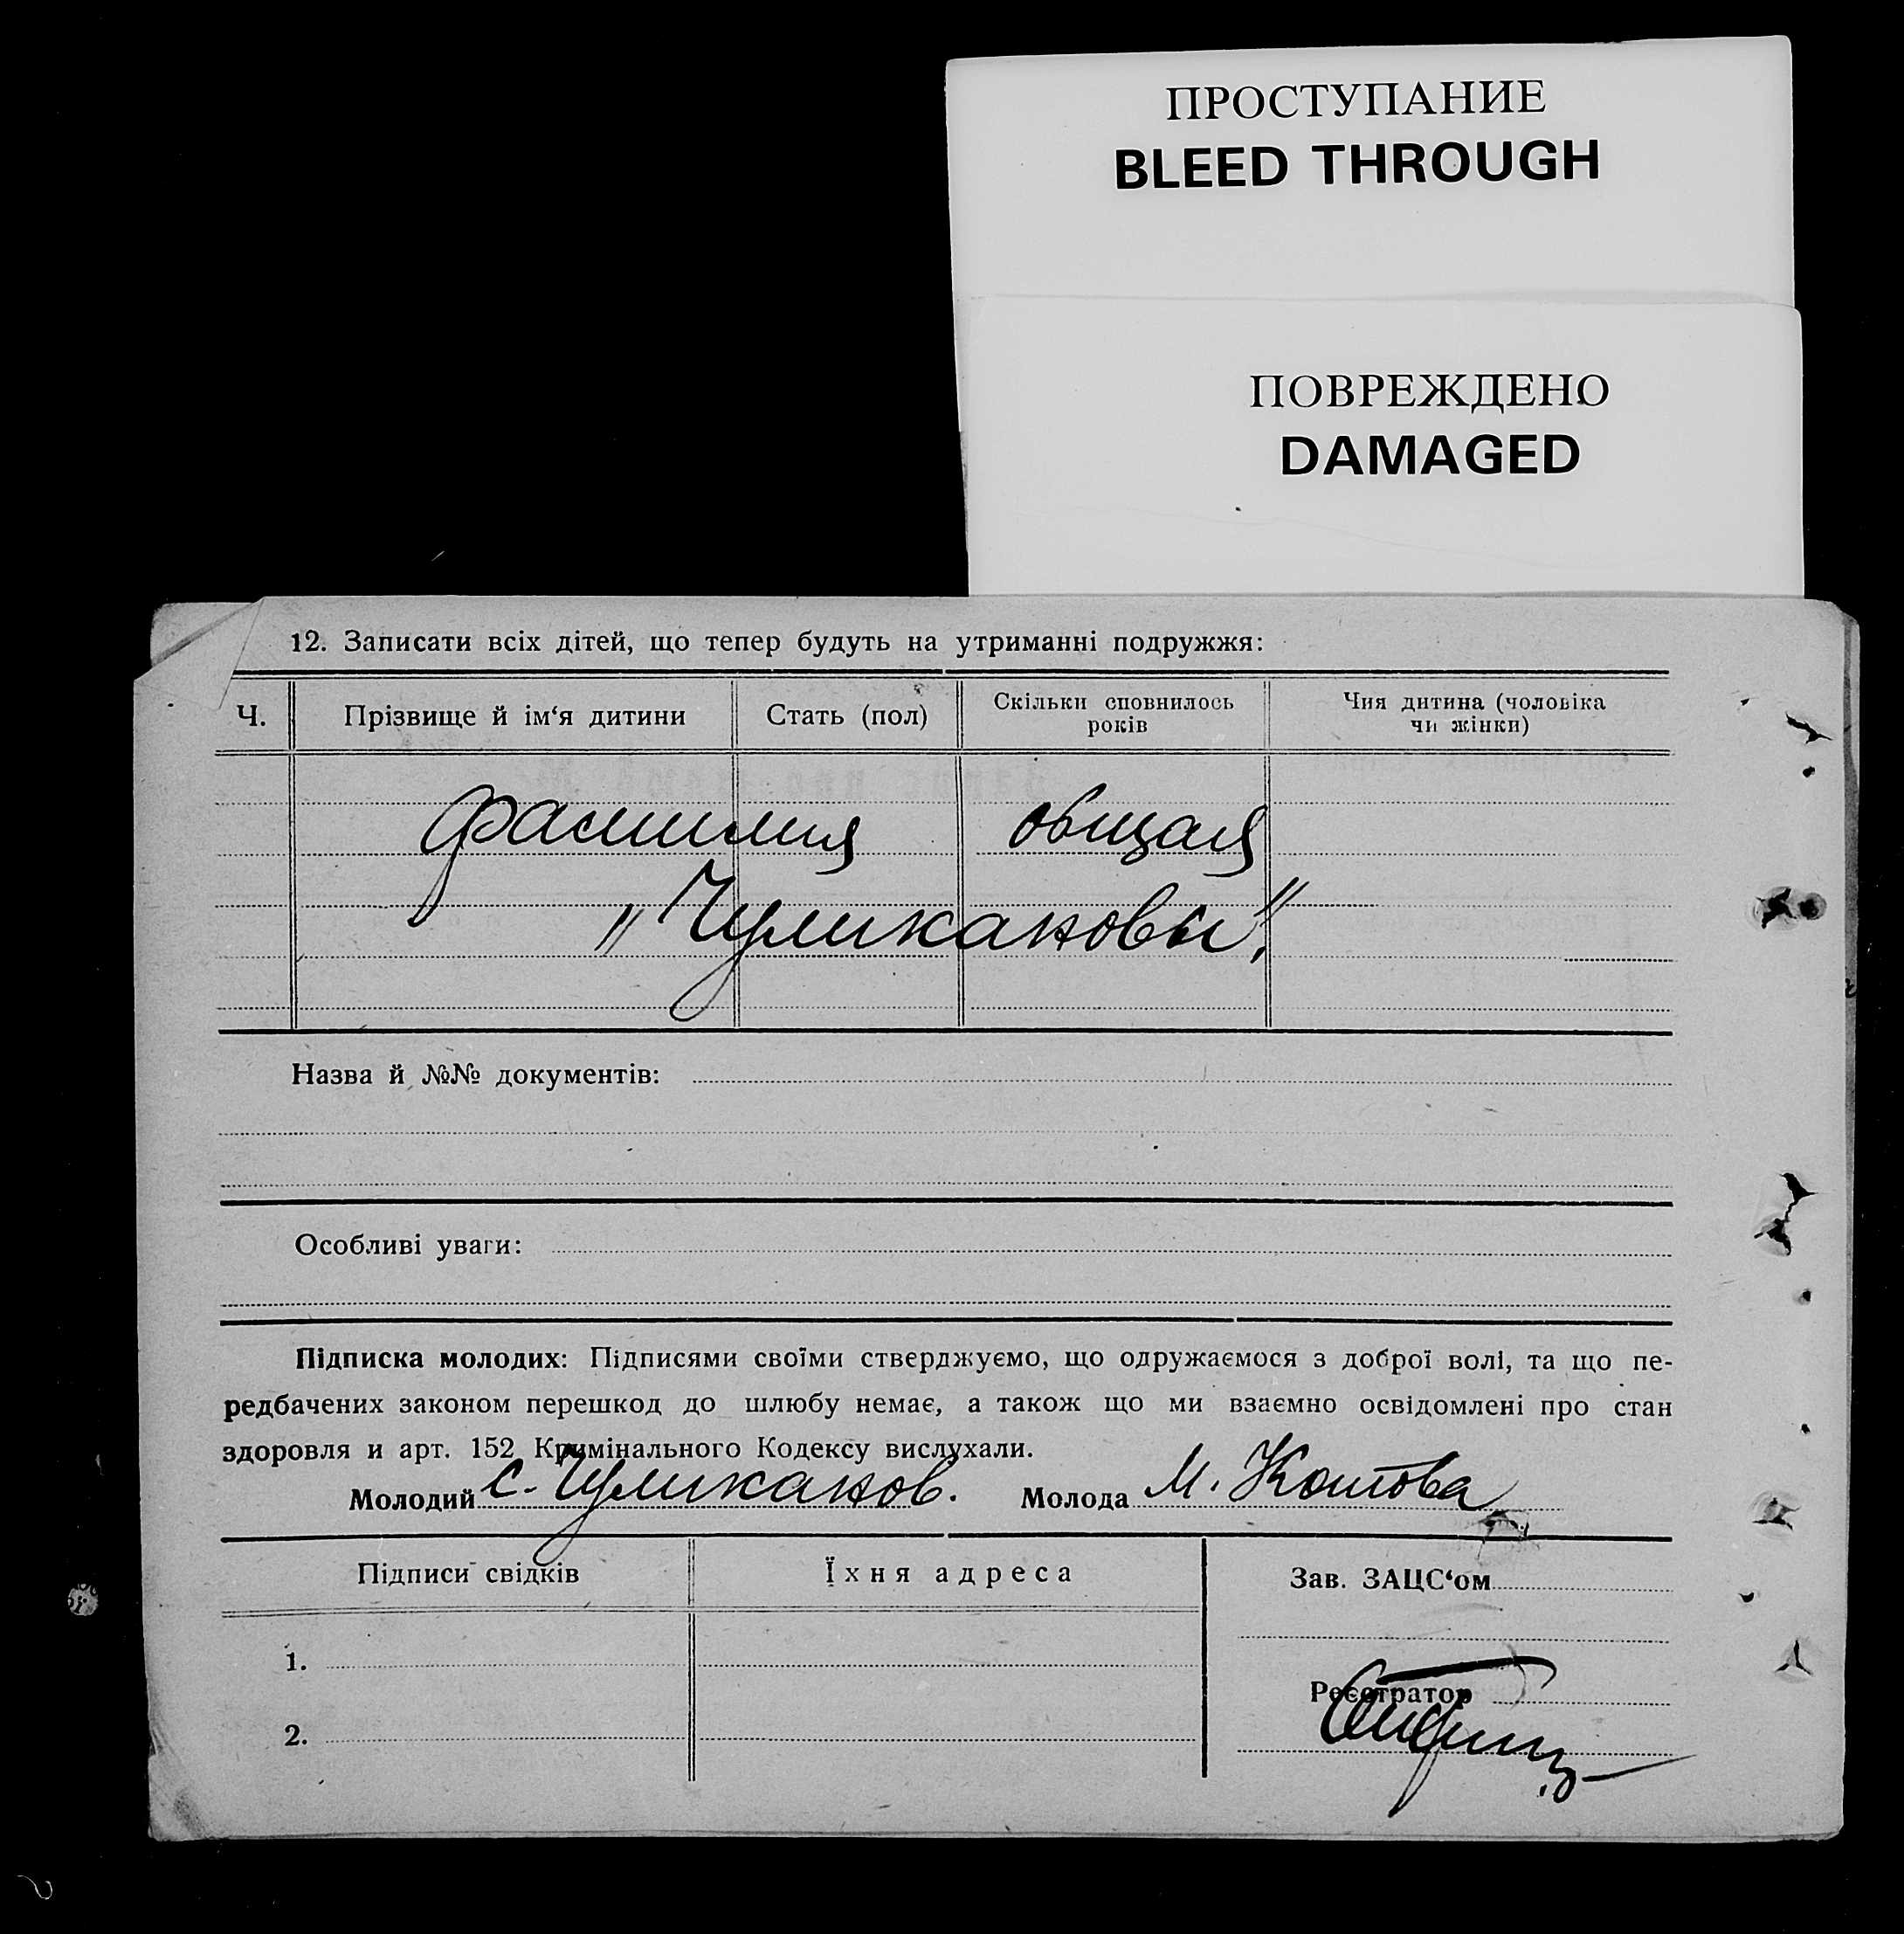 ПРОСТУПАНИЕ
BLEED THROUGH
ПОВРЕЖДЕНО
DAMAGED
12. Записати всіх дітей, що тепер будуть на утриманні подружжя:
Ч. Прізвище й ім‘я дитини Стать (пол) Скільки сповнилось років Чия дитина (чоловіка чи жінки)
фамилия общая
„Чуликановы".
Назва й №№ документів:
Особливі уваги:
Підписка молодих: Підписями своїми стверджуємо, що одружаємося з доброї волі, та що пе-
редбачених законом перешкод до шлюбу немає, а також що ми взаємно освідомлені про стан
здоровля и арт. 152 Кримінального Кодексу вислухали.
Молодий С. Чуликанов. Молода М. Котова
Підписи свідків Їхня адреса Зав. ЗАЦС‘ом
1.
Реєстратор
2.